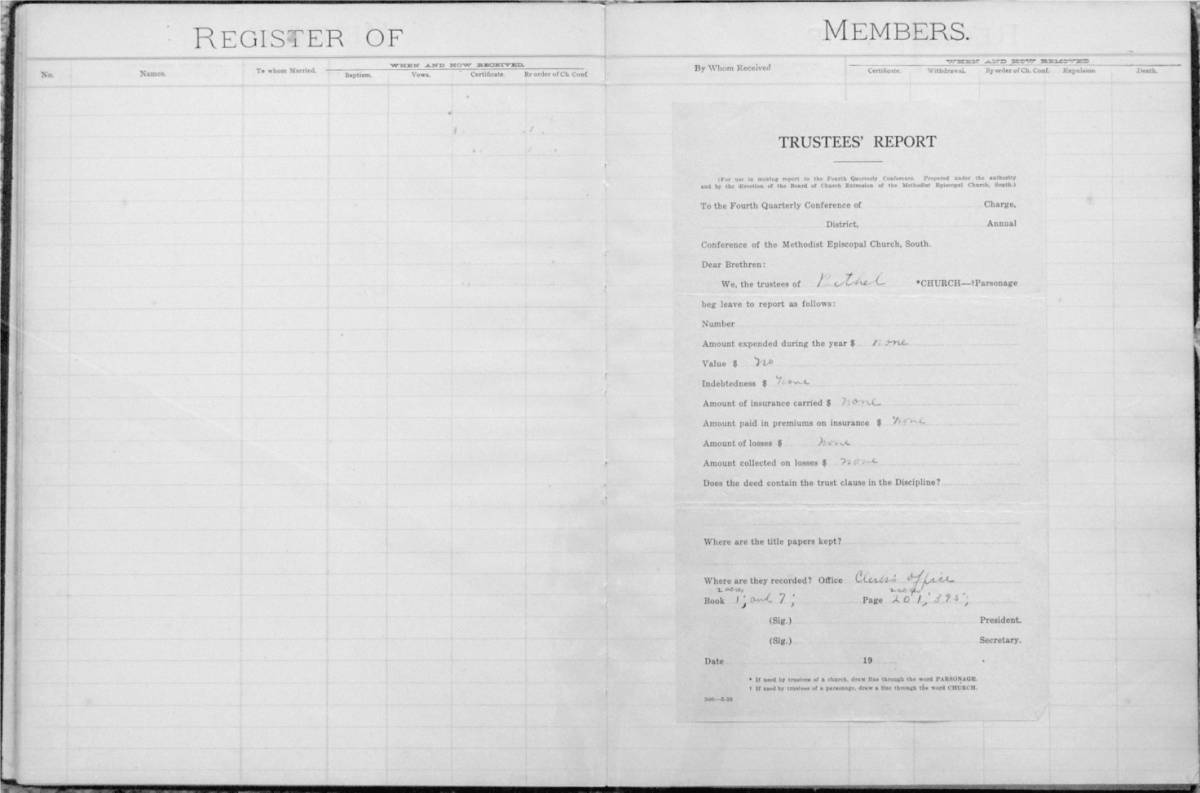 REGISTER OF
No.
Names.
To whom Married.
WHEN AND HOW RECEIVED.
Baptism. Vows. Certificate. By order of Ch. Conf.
MEMBERS.
By Whom Received
WHEN AND HOW REMOVED
Certificate. Withdrawal. By order of Ch. Conf. Expulsion Death.
TRUSTEES' REPORT
(For use in making report to the Fourth Quarterly Conference. Prepared under the authority
and by the direction of the Board of Church Extension of the Methodist Episcopal Church, South.)
To the Fourth Quarterly Conference of Charge,
District, Annual
Conference of the Methodist Episcopal Church, South.
Dear Brethren:
We, the trustees of Bethel *CHURCH—†Parsonage
beg leave to report as follows:
Number
Amount expended during the year $ none
Value $ no
Indebtedness $ none
Amount of insurance carried $ none
Amount paid in premiums on insurance $ none
Amount of losses $ none
Amount collected on losses $ none
Does the deed contain the trust clause in the Discipline?
Where are the title papers kept?
Where are they recorded? Office Clerks office
Book 1; and 7; Page 201; 395;
(Sig.) President.
(Sig.) Secretary.
Date 19
* If used by trustees of a church, draw line through the word PARSONAGE.
† If used by trustees of a parsonage, draw a line through the word CHURCH.